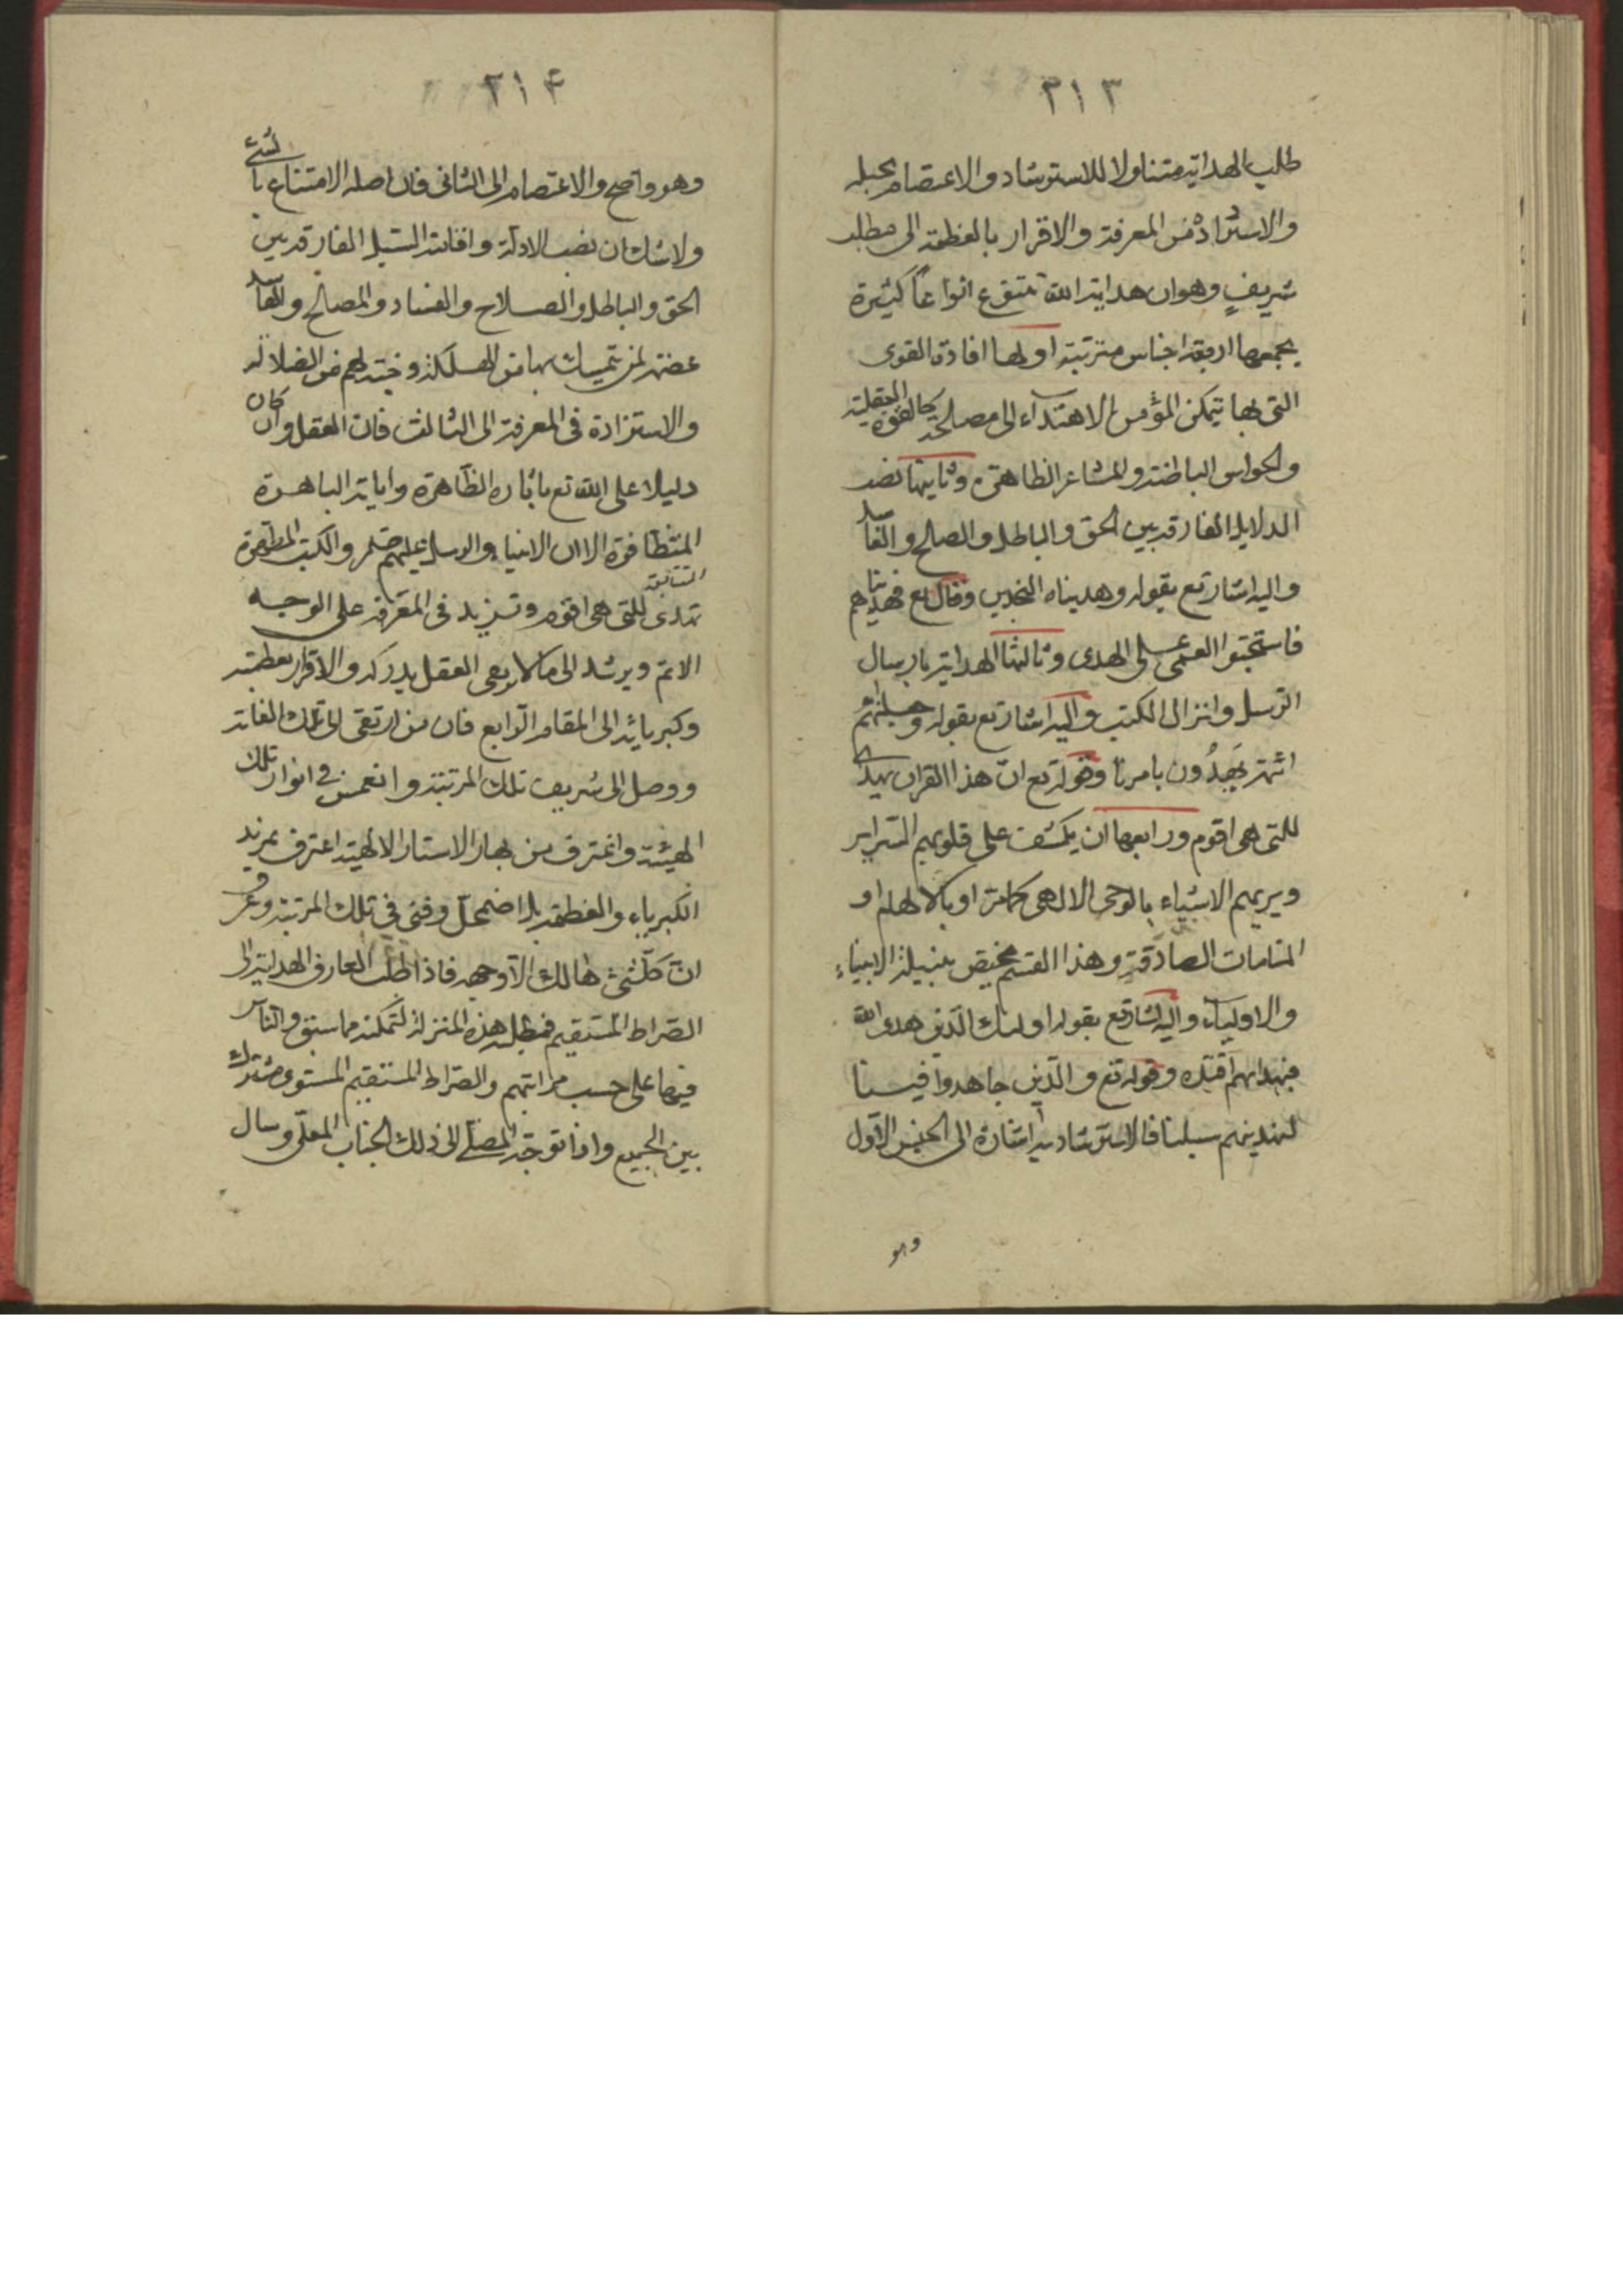 ٣١٣
طلب الهداية متناولا للاسترشاد والاعتصام بحبله
والاستزادة من المعرفة والاقرار بالعظمة الى مطلب
شريف وهو ان هداية الله تتنوع انواعاً كثيرة
يجمعها اربعة اجناس مترتبة اولها افادة القوى
التى بها يتمكن المؤمن الاهتداء الى مصالحه كالقوة العقلية
والحواس الباطنة والمشاعر الظاهرة وثانيها نصب
الدلايل الفارقة بين الحق والباطل والصالح والفاسد
واليه اشار تع بقوله وهديناه النجدين وقال تع فهديناهم
فاستحبوا العمى على الهدى وثالثها الهداية بارسال
الرسل وانزال الكتب واليه اشار تع بقوله وجعلناهم
ائمة يَهدُون بامرنا وقوله تع انّ هذا القران يهدى
للتى هى اقوم ورابعها ان يكشف على قلوبهم السراير
ويريهم الاشياء بالوحى الالهى او بالالهام او
المنامات الصادقة وهذا القسم يختص بنيله الانبياء
والاولياء واليه اشار تع بقوله اولئك الّذين هدى الله
فبهداهم اقتده وقوله تع والّذين جاهدوا فينا
لنهدينهم سبلنا فالاسترشاد به اشارة الى الجنس الاوّل
وهو
٣١٤
وهو واضح والاعتصام الى الثانى فان اصله الامتناع بالشئ
ولا شك ان نصب الادلّة واقامة السّبل الفارقة بين
الحق والباطل والصلاح والفساد والمصالح والمفاسد
عصمة لمن يتمسك بها من الهلكة وجنة لهم من الضلالة
والاستزادة فى المعرفة الى الثالث فان العقل وان كان
دليلا على الله تع باثاره الظّاهرة واياته الباهرة
المتظافرة الا ان الانبياء والرسل عليهم والكتب المطهرة
السابقة
تهدى للتى هى اقوم وتزيد فى المعرفة على الوجه
الاتم ويرشد الى ما لا يفى العقل بدركه والاقرار بعظمته
وكبريائه الى المقام الرّابع فان من ارتقى الى تلك الغاية
ووصل الى شريف تلك المرتبة وانغمس فى انوار تلك
الهيئة واغترف من بحار الاستار الالهية اعترف بمزيد
الكبرياء والعظمة بل اضمحلّ وفنى فى تلك المرتبة وعرف
انّ كلّ شئ هالك الّا وجهه فاذا طلب العارف الهداية الى
الصّراط المستقيم فمطلبه هذه المنزلة لتمكنه مما سبق والنّاس
فيها على حسب مراتبهم والصّراط المستقيم المستوى مشترك
بين الجميع واذا توجّه المصلّى الى ذلك الجناب المعلّى وسال